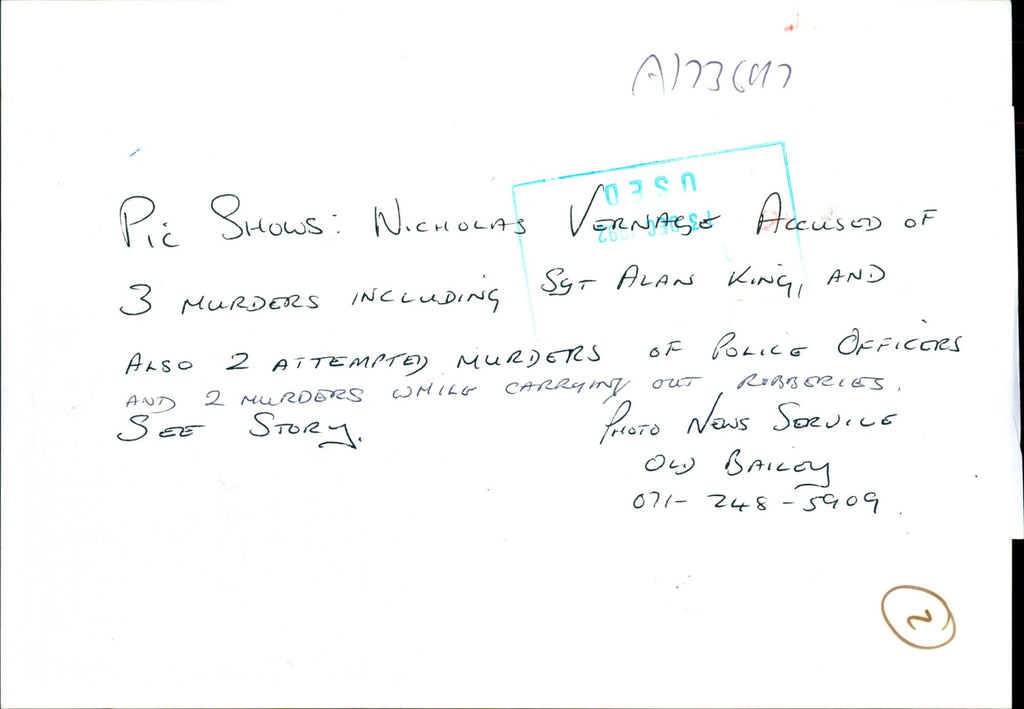 Pic Shows: Nicholas Vernage Accused of
3 murders including Sgt Alan King, and
Also 2 attempted murders of Police Officers
and 2 murders while carrying out robberies.
See Story.
Photo News Service
Old Bailey
071-248-5909
USED
3 DEC 1992
2